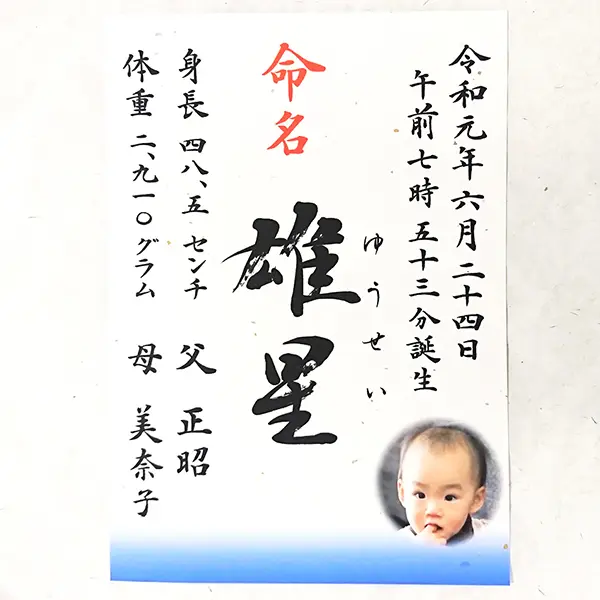 令和元年六月二十四日
午前七時 五十三分誕生
ゆうせい
命名
雄星
身長 四八、五 センチ
父 正昭
体重 二、九一〇 グラム
母 美奈子